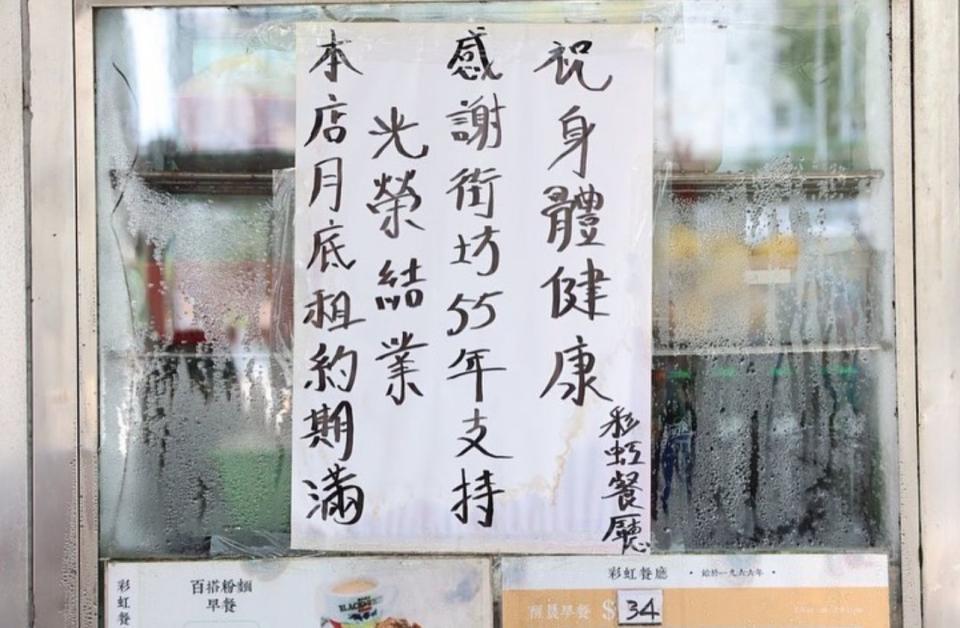 本店月底租約期滿
光榮結業
感謝街坊55年支持
祝身體健康
彩虹餐廳
彩虹餐
百搭粉麵
早餐
彩虹餐廳 • 始於一九六六年 •
晨早餐 $34